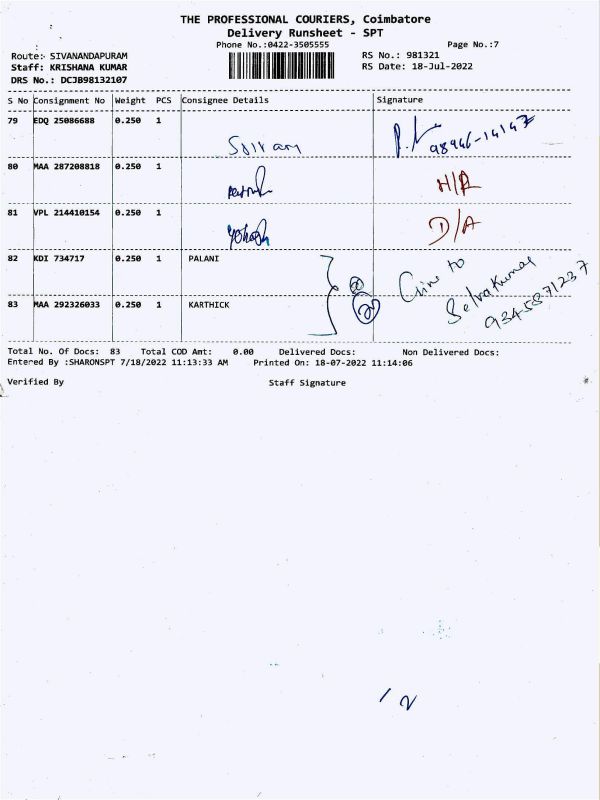 THE PROFESSIONAL COURIERS, Coimbatore
Delivery Runsheet - SPT
Phone No.:0422-3505555 Page No.:7
Route: SIVANANDAPURAM RS No.: 981321
Staff: KRISHANA KUMAR RS Date: 18-Jul-2022
DRS No.: DCJB98132107
S No Consignment No Weight PCS Consignee Details Signature
79 EDQ 25086688 0.250 1
98946-14147
80 MAA 287208818 0.250 1
H/R
81 VPL 214410154 0.250 1
D/A
82 KDI 734717 0.250 1 PALANI
Give to
Selvakumar
9345871237
83 MAA 292326033 0.250 1 KARTHICK
Total No. Of Docs: 83 Total COD Amt: 0.00 Delivered Docs: Non Delivered Docs:
Entered By :SHARONSPT 7/18/2022 11:13:33 AM Printed On: 18-07-2022 11:14:06
Verified By Staff Signature